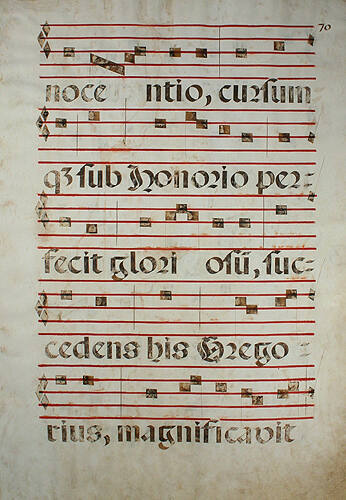 70
noce ntio, cursum
qȝ sub Honorio per=
fecit glori osū, suc=
cedens his Grego =
rius, magnificavit